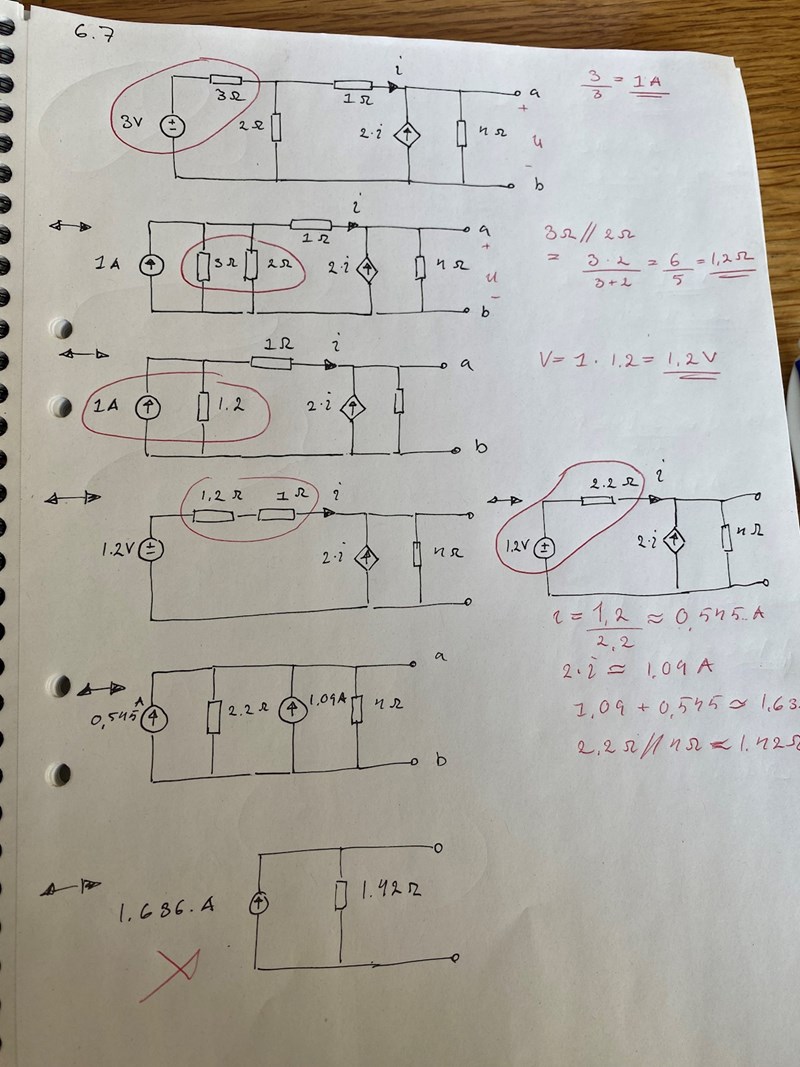 6.7
3Ω 1Ω i a
3V 2Ω 2·i 4Ω + u -
b
3/3 = 1A
i
1Ω a
1A 3Ω 2Ω 2·i 4Ω + u -
b
3Ω // 2Ω
= 3·2/3+2 = 6/5 = 1,2Ω
1Ω i a
1A 1.2 2·i
b
V = 1 · 1.2 = 1,2V
1,2Ω 1Ω i
1.2V 2·i 4Ω
2.2Ω i
1.2V 2·i 4Ω
i = 1,2/2,2 ≈ 0,545.A
2·i ≃ 1,09 A
1,09 + 0,545 ≃ 1,63
2,2Ω // 4Ω ≃ 1.42Ω
a
0,545 A 2.2Ω 1.09A 4Ω
b
1.636.A 1.42Ω